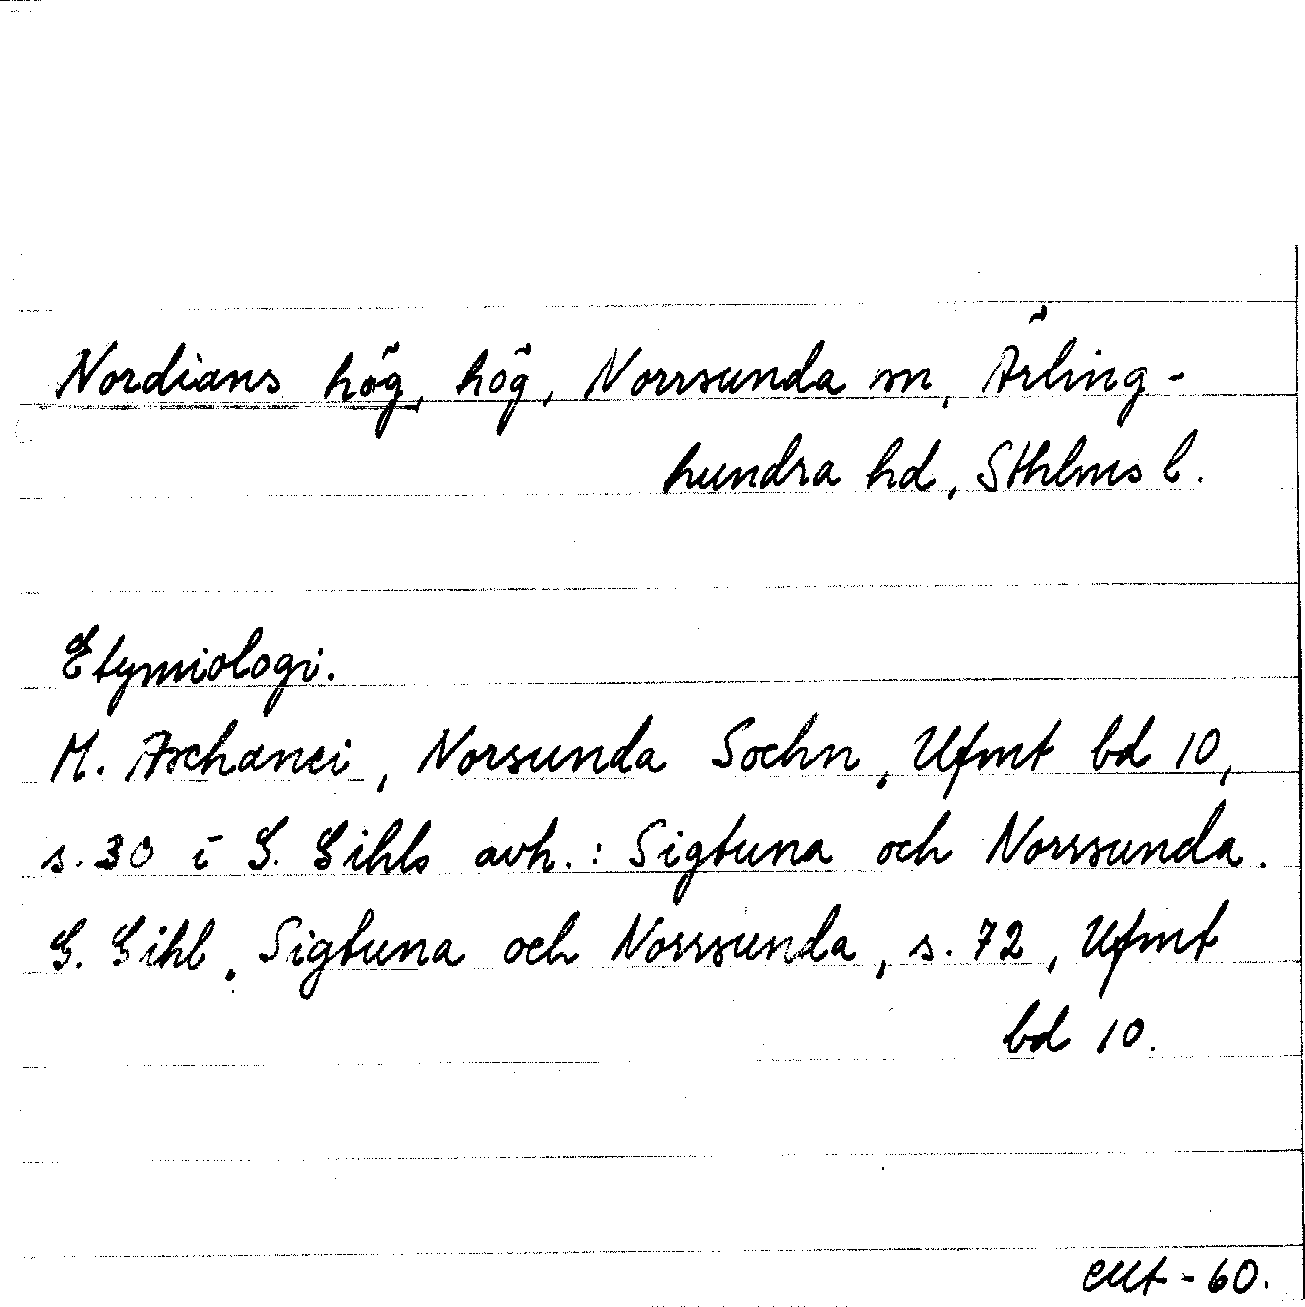 Nordians hög, hög, Norrsunda sn, Ärling-
hundra hd, Sthlms l.
Etymologi.
M. Aschanei, Norsunda Sochn, Ufmt bd 10,
s. 30 i G. Gihls avh.: Sigtuna och Norrsunda.
G. Gihl, Sigtuna och Norrsunda, s. 72, Ufmt
bd 10.
-60.